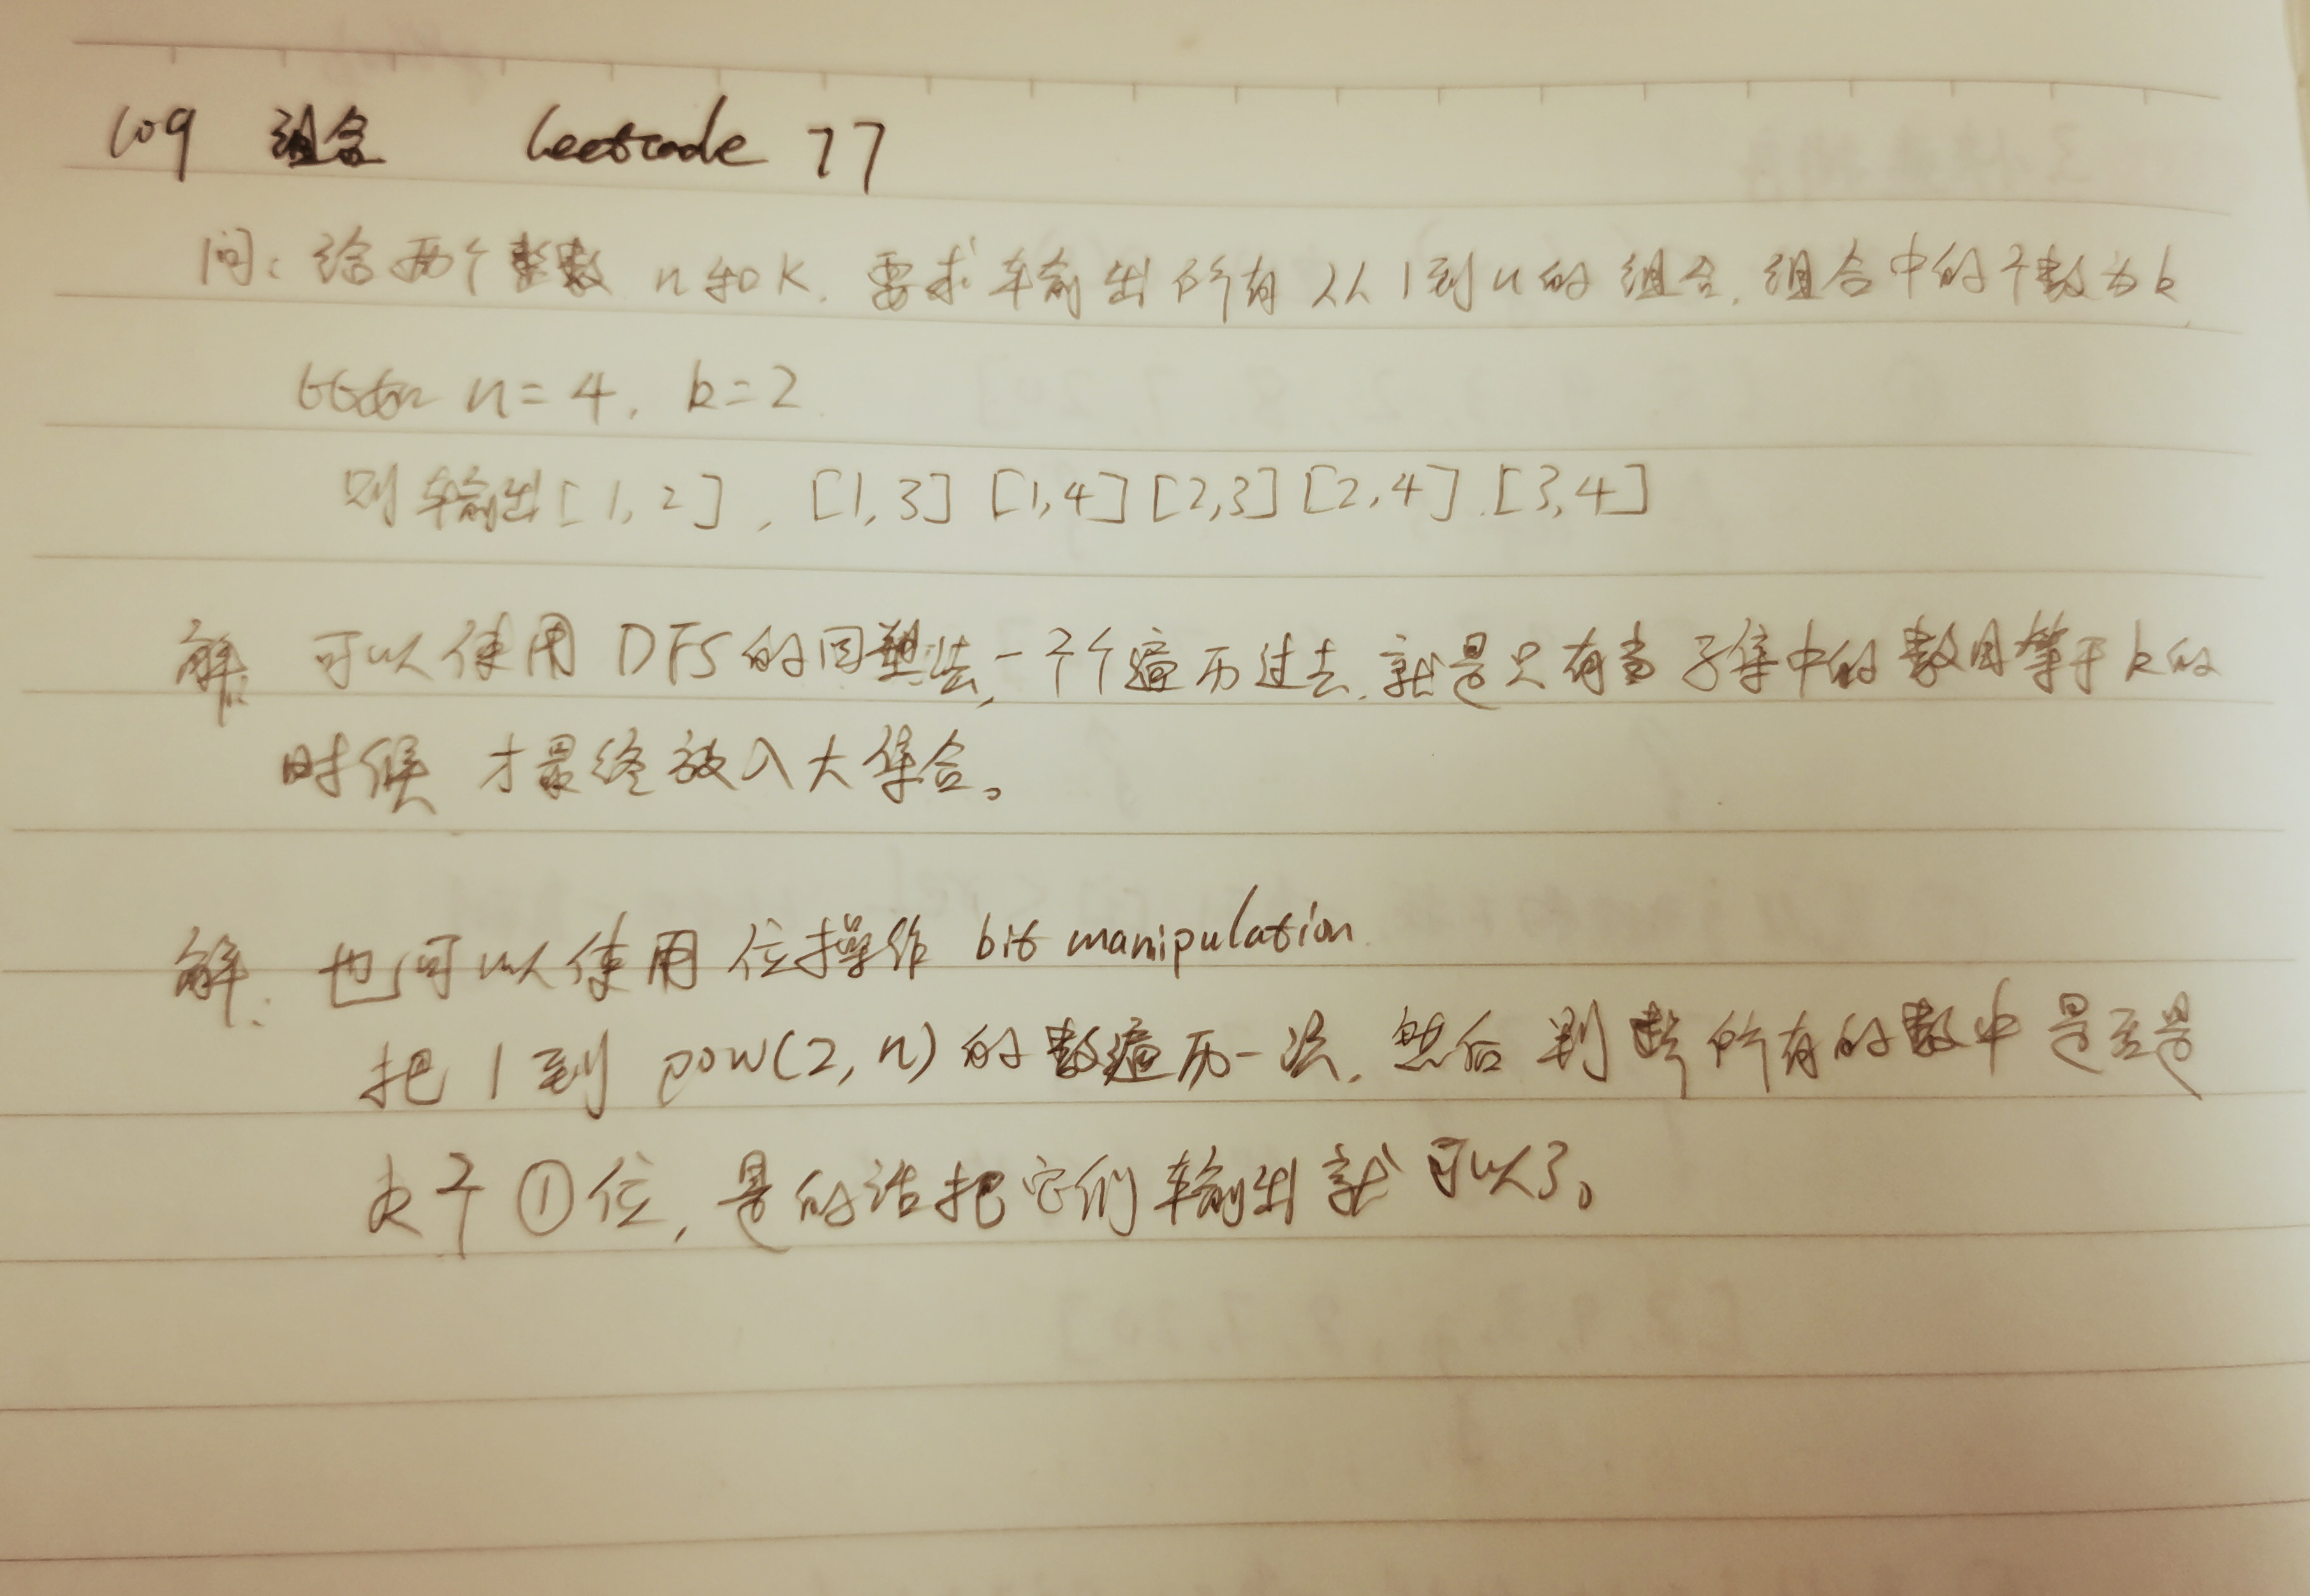 109 组合 leetcode 77
问：给两个整数 n和K. 要求输出所有从1到n的组合, 组合中的个数为k.
比如 n=4, k=2.
则输出[1,2], [1,3] [1,4] [2,3] [2,4]. [3,4]
解: 可以使用 DFS的回溯法, 一个个遍历过去, 就是只有当子集中的数目等于k的
时候 才最终放入大集合。
解: 也可以使用 位操作 bit manipulation.
把 1 到 pow(2,n) 的数遍历一次, 然后 判断所有的数中 是否是
k个 ①位, 是的话把它们输出就可以了。